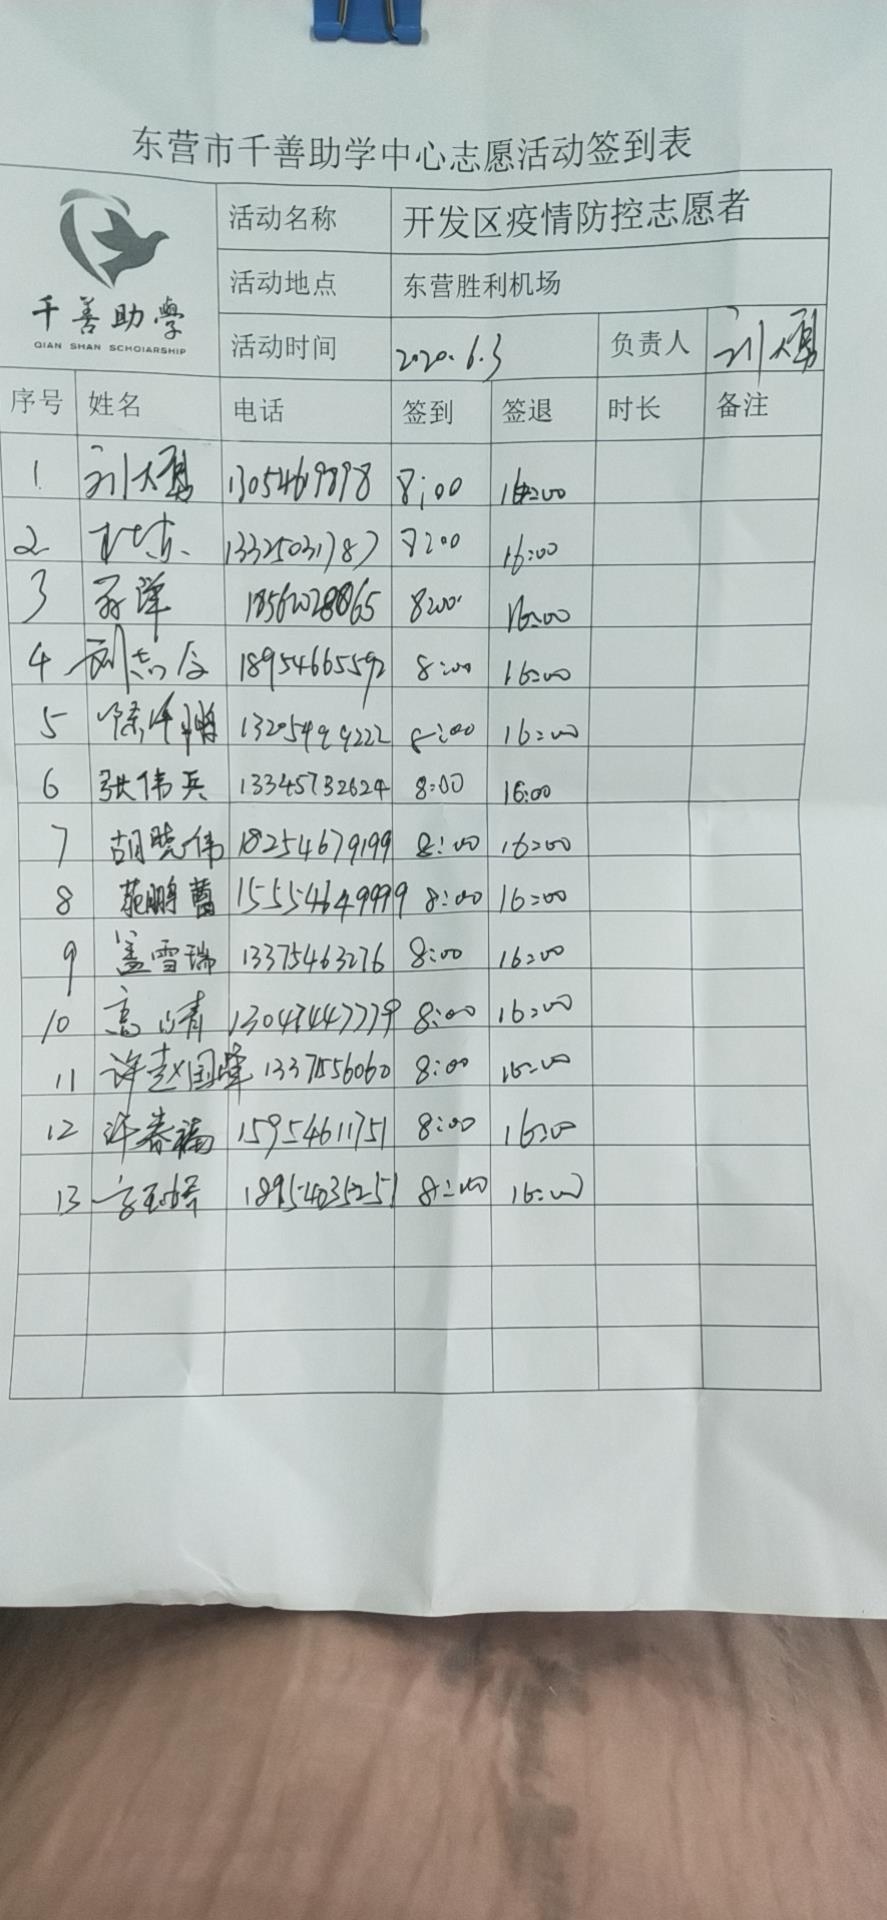 东营市千善助学中心志愿活动签到表
千善助学
QIAN SHAN SCHOIARSHIP
活动名称 开发区疫情防控志愿者
活动地点 东营胜利机场
活动时间 2020.6.3 负责人 刘大勇
序号 姓名 电话 签到 签退 时长 备注
1 刘大勇 13054619898 8:00 16:00
2 13325031787 8:00 16:00
3 18562028865 8:00 16:00
4 刘志 18954665592 8:00 16:00
5 13205499222 8:00 16:00
6 张伟兵 13345732624 8:00 16:00
7 胡晓伟 18254679199 8:00 16:00
8 鹏蕾 15554649999 8:00 16:00
9 盖雪瑞 13375463276 8:00 16:00
10 高 8:00 16:00
11 许赵国峰 8:00 16:00
12 许春福 15954611751 8:00 16:00
13 8:00 16:00